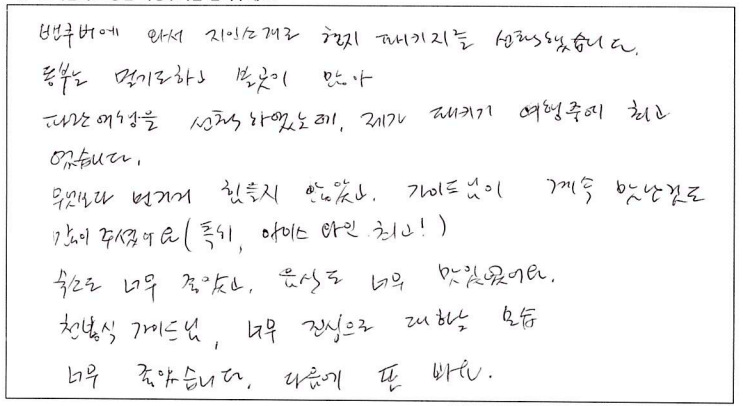 밴쿠버에 와서 지인소개로 현지 패키지를 선택했습니다.
동부는 멀기도하고 볼곳이 많아
파란여행을 선택하였는데, 제가 패키지 여행중에 최고
였습니다.
무엇보다 힘들지 않았고, 가이드님이 계속 맛난것도
많이 주셨어요(특히, 아이스와인 최고!)
숙소도 너무 좋았고, 음식도 너무 맛있었어요.
천봉식 가이드님, 너무 진심으로 대하는 모습
너무 좋았습니다. 다음에 또 봐요.